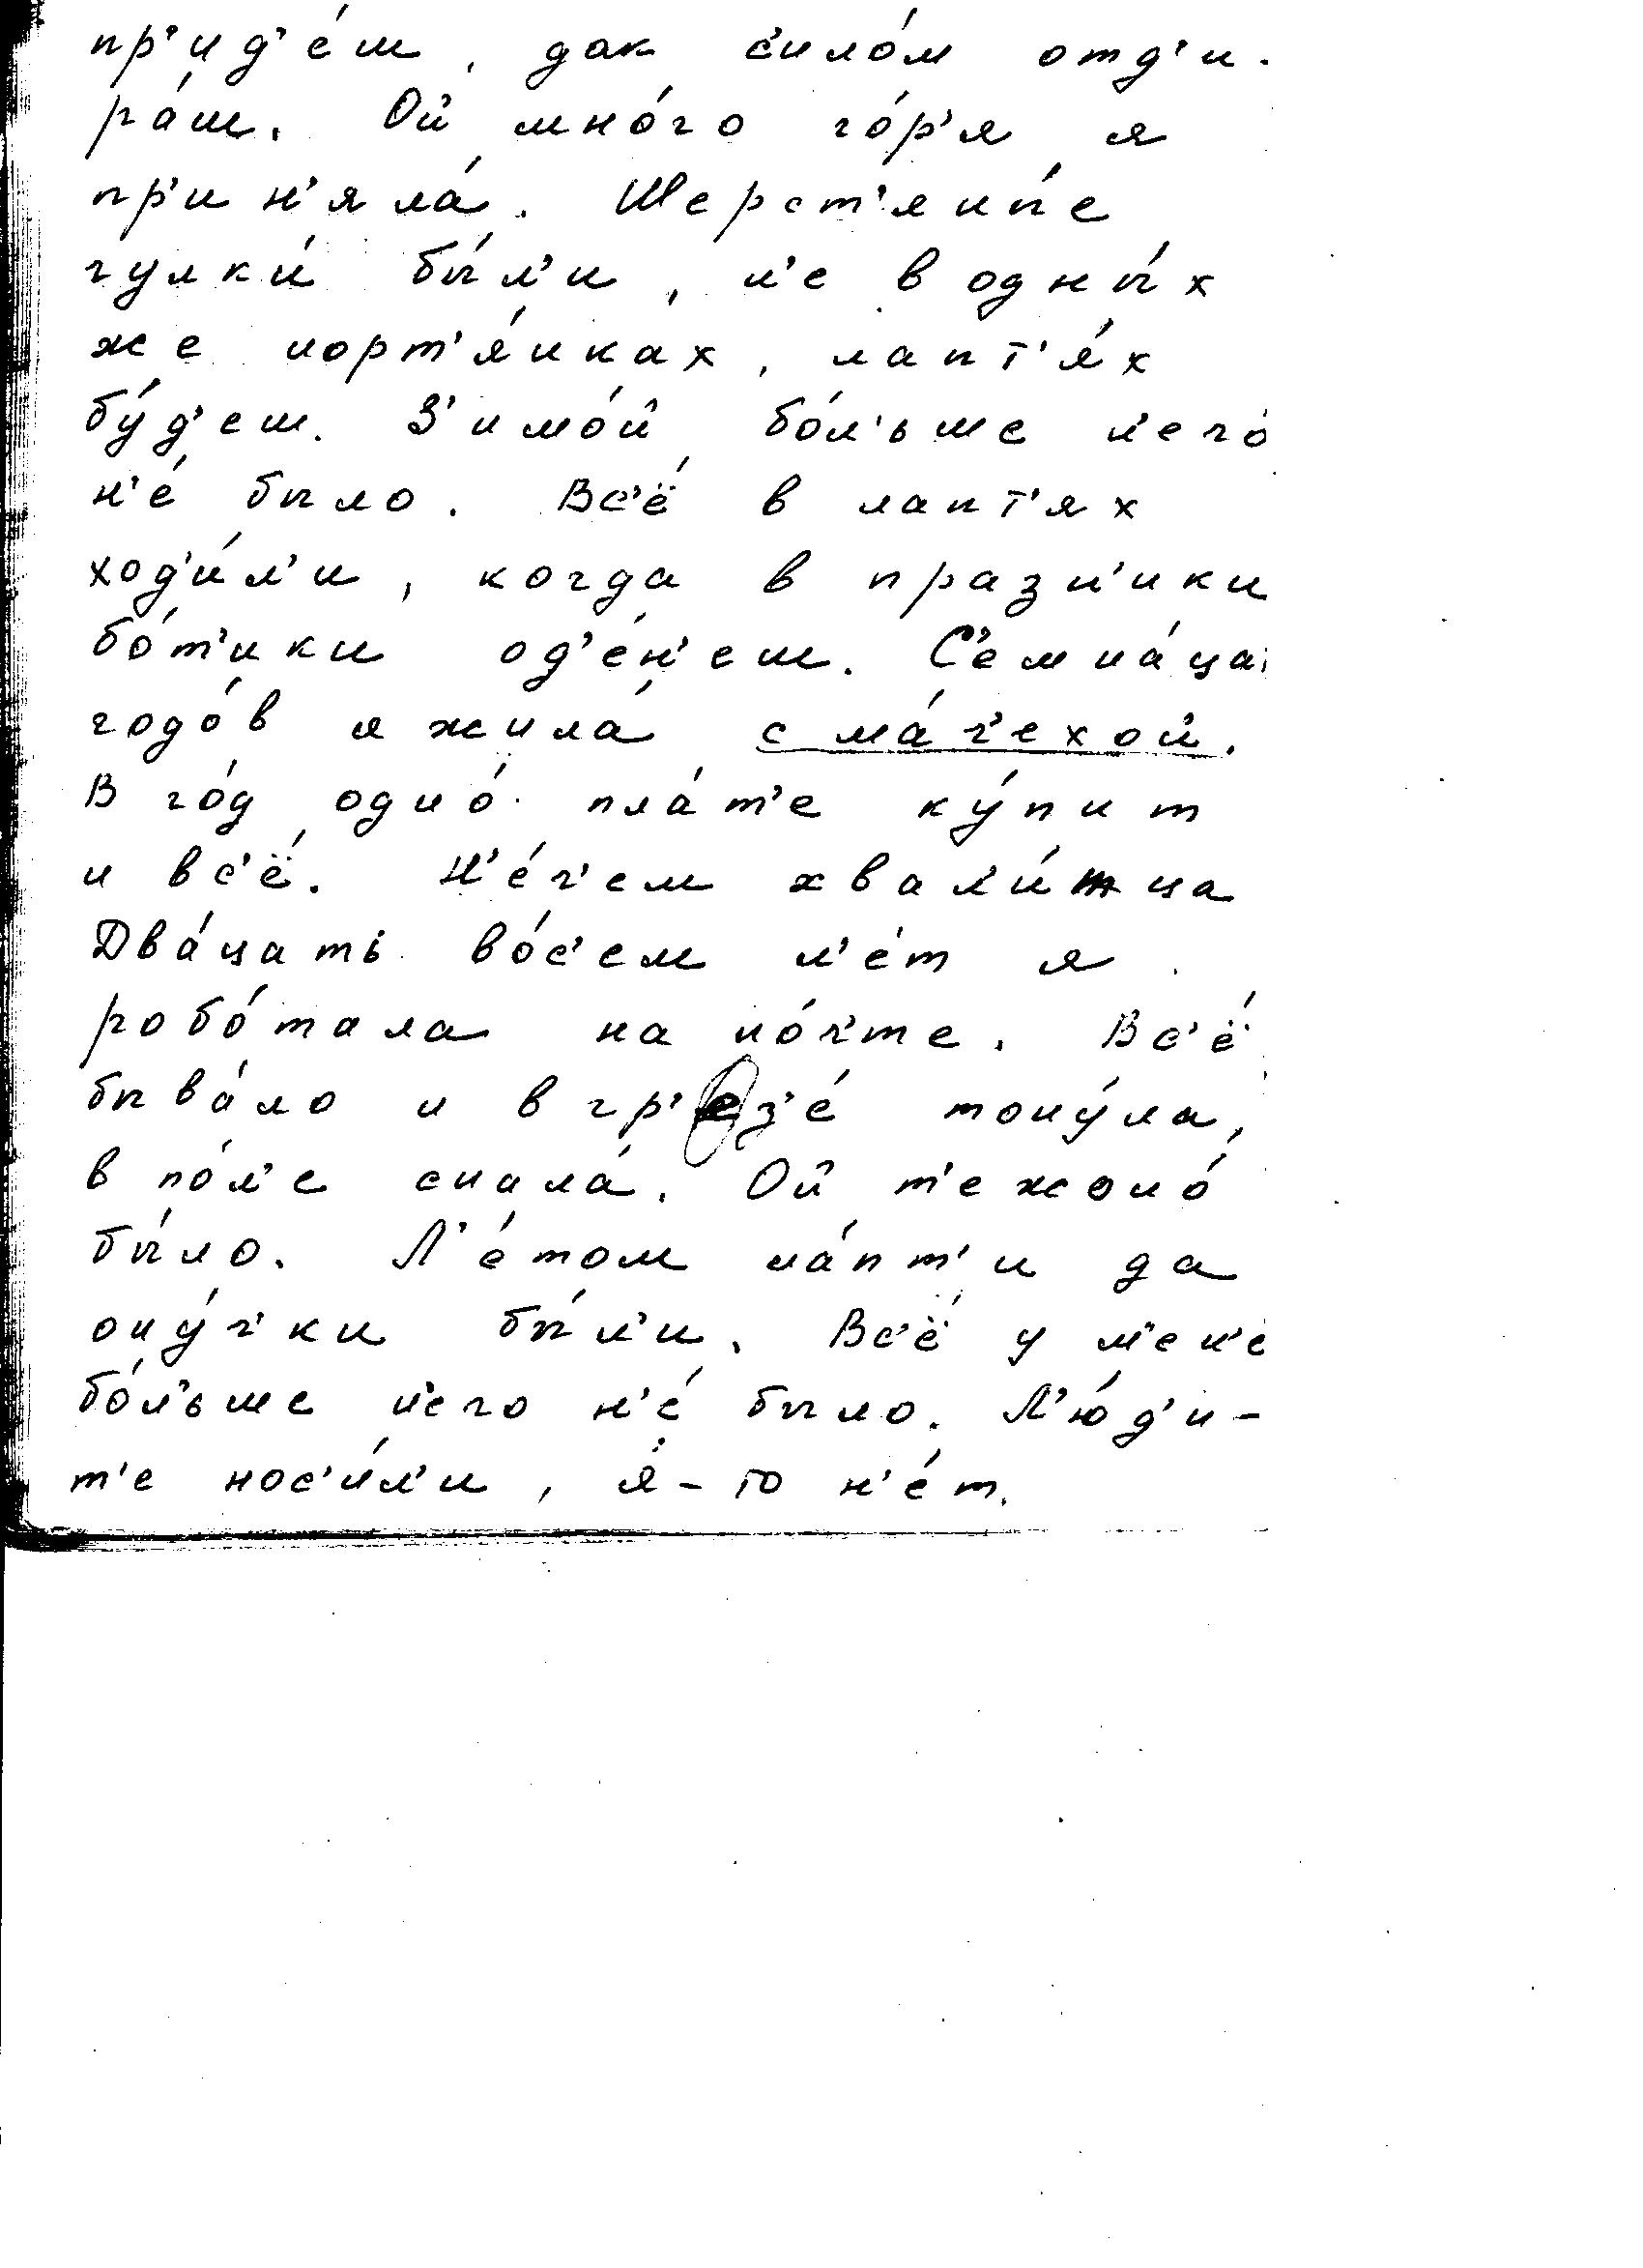 пр'ид'е́ш, дак с'ило́м отд'и-
ра́ш. Ой мно́го го́р'я я
пр'ин'яла́. Шерст'яны́е
чулки́ бы́л'и, н'е в одны́х
же порт'я́нках, лапт'я́х
бу́д'еш. З'имо́й бо́л'ьше н'ечо́
н'е́ было. Вс'ё в лапт'ях
ход'и́л'и, когда в празн'ики
бо́т'ики од'е́н'еш. С'емна́ца
годо́в я жила́ с ма́ч'ехой.
В го́д одно́ пла́т'е ку́пит
и вс'ё. Н'е́ч'ем хвал'и́тца
Два́цать во́с'ем л'е́т я
робо́тала на по́ч'те. Вс'ё
быва́ло и в гр'ез'е́ тону́ла,
в по́л'е спала́. Ой т'ежоло́
бы́ло. Л'е́том ла́пт'и да
ону́ч'ки бы́л'и. Вс'ё у м'ен'е
бо́л'ьше н'ечо н'е́ было. Л'ю́д'и-
т'е нос'и́л'и, я́-то н'е́т.